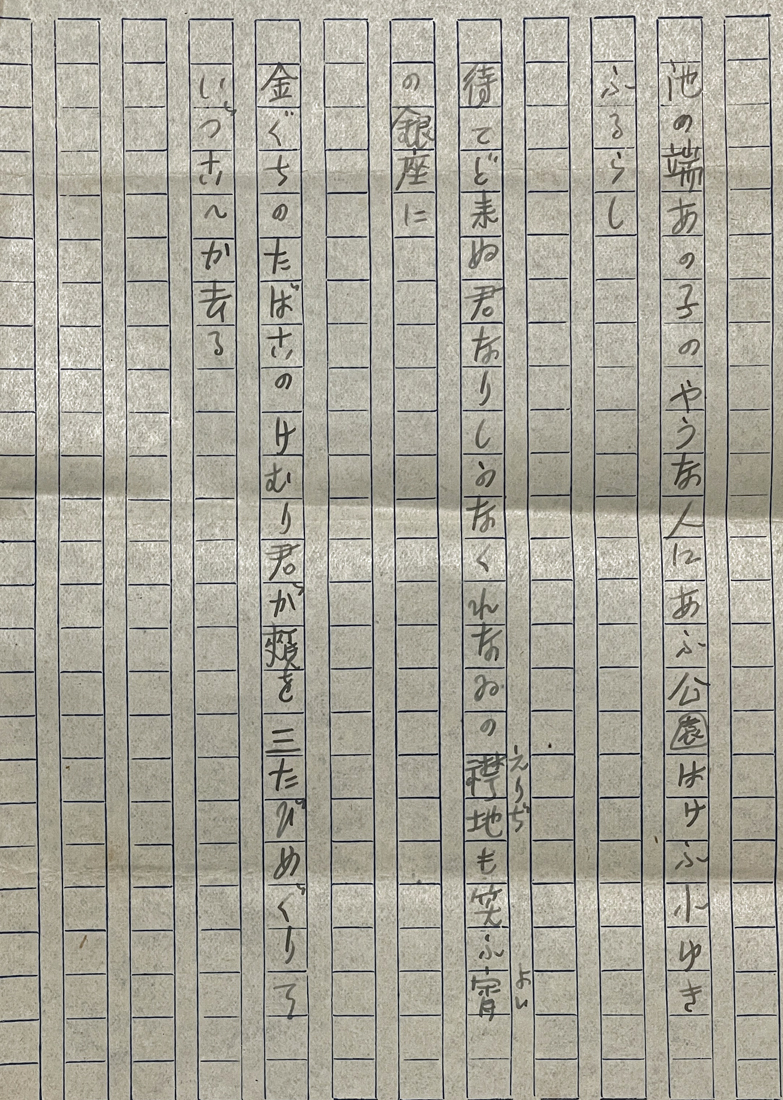 池の端あの子のやうな人にあふ公園はけふ小ゆき
ふるらし
えりぢ
よい
待てど来ぬ君なりしかなくれなゐの襟地も笑ふ宵
の銀座に
金ぐちのたばこのけむり君が頬を三たびめぐりて
いづこへか去る